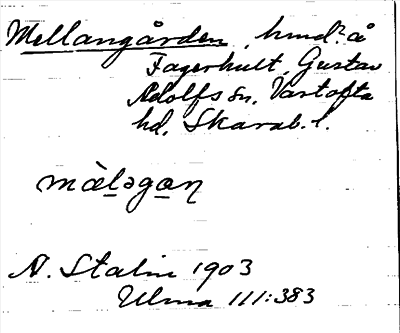 Mellangården, hmd? å
Fagerhult, Gustav
Adolfs sn, Vartofta
hd, Skarab. l.
màləgaɳ
N. Stalin 1903
Ulma 111:383